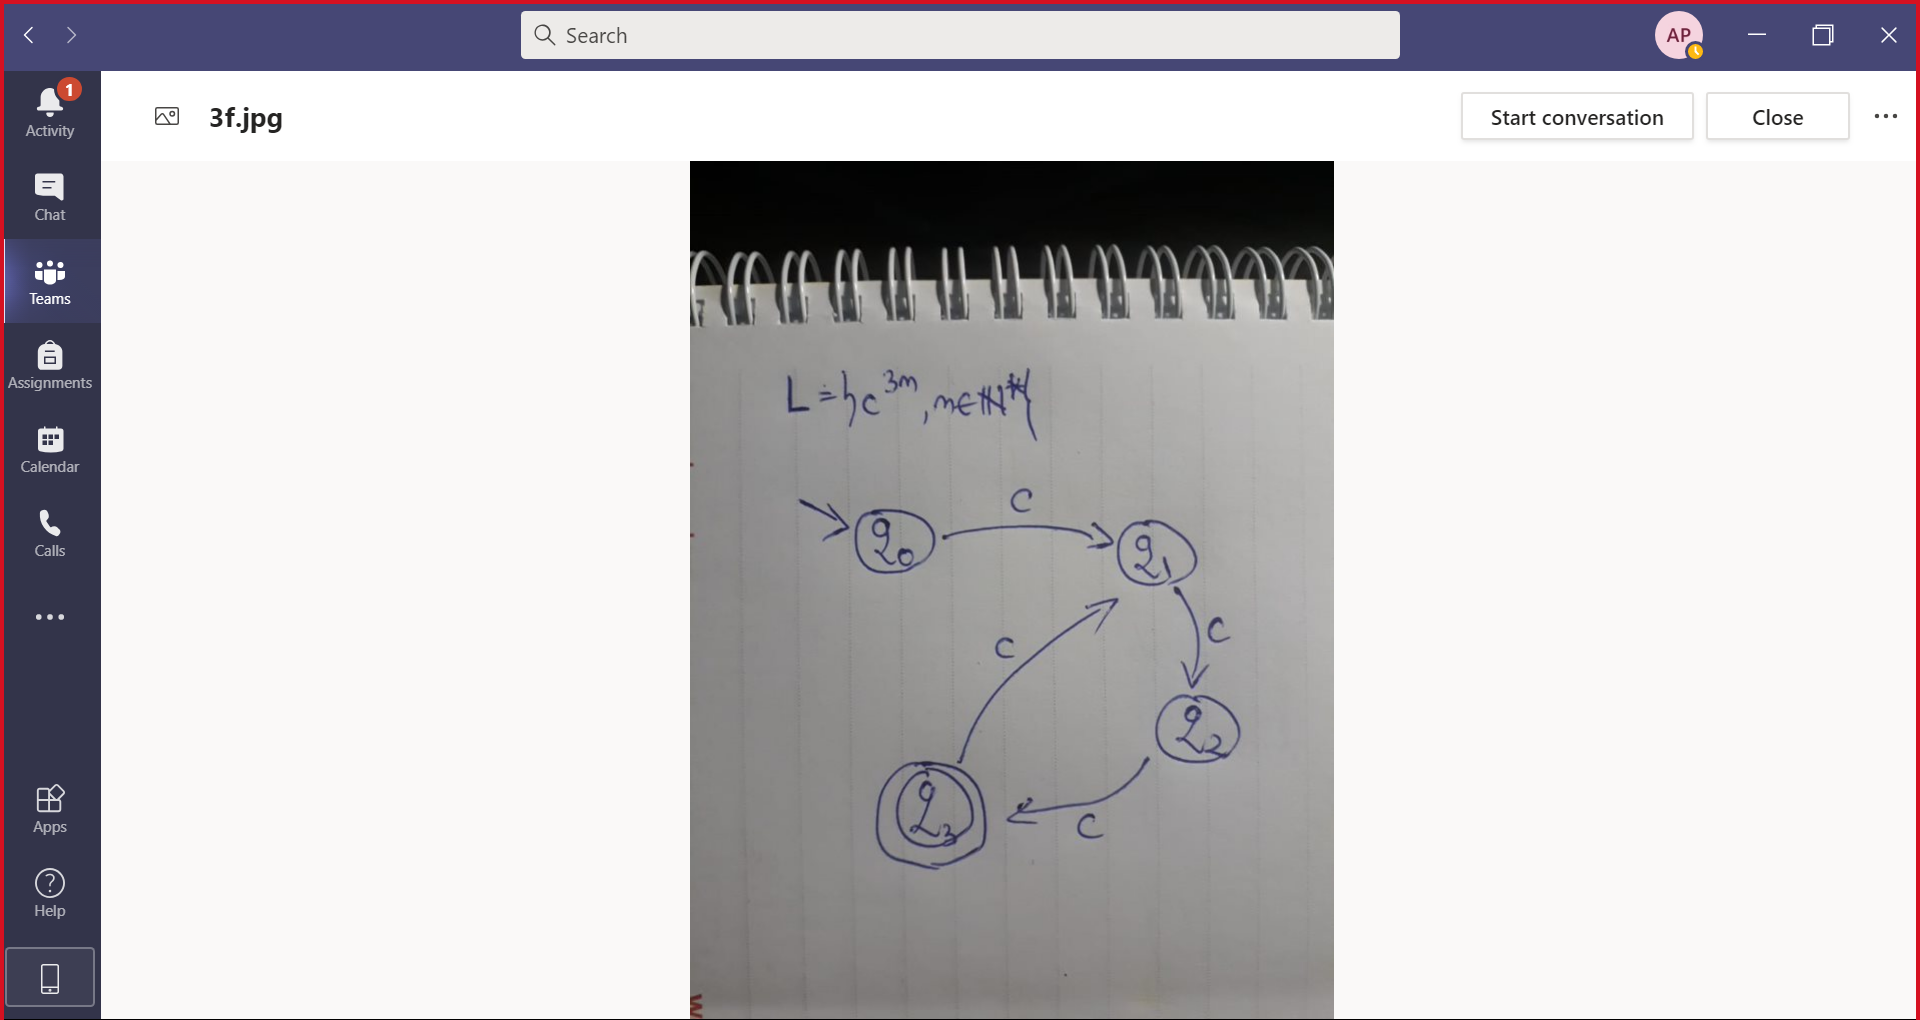 Search
AP
1
Activity
Chat
Teams
Assignments
Calendar
Calls
Apps
Help
3f.jpg
Start conversation
Close
L = {c^3n, n∈ℕ*}
q0
c
q1
c
c
q2
q3
c